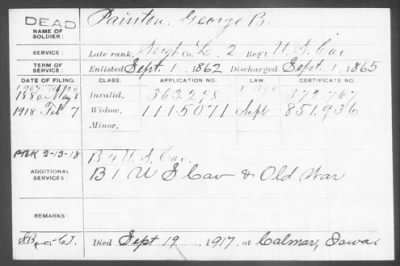 DEAD
NAME OF SOLDIER: Painter, George B.
SERVICE: Late rank, Co. L, 2 Reg't U.S. Cav
TERM OF SERVICE: Enlisted Sept. 1, 1862 Discharged Sept. 1, 1865
DATE OF FILING. CLASS. APPLICATION NO. LAW. CERTIFICATE NO.
1880 May Invalid, 363258 372767
1918 Feb 7 Widow, 1115071 Sept 851,936
Minor,
2-13-18 B 1 U.S. Cav.
ADDITIONAL SERVICES: B 1 U S Cav & Old War
REMARKS:
Died Sept 19, 1917, at Calmar, Iowa.